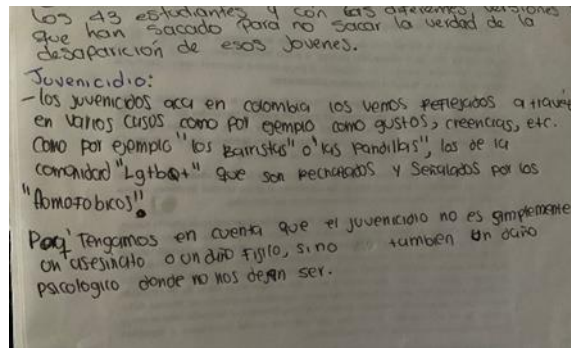 los 43 estudiantes y con las diferentes versiones
que han sacado para no sacar la verdad de la
desaparición de esos Jovenes.
Juvenicidio:
- los juvenicidos aca en colombia los vemos reflejados a través
en varios casos como por egemplo como gustos, creencias, etc.
Como por egemplo "los Barristas" o "las pandillas", los de la
comonidad "Lgtbq+" que son rechazados y Señalados por los
"Homofobicos".
Tengamos en cuenta que el juvenicidio no es simplemente
un asesinato o un daño fisico, sino tambien un daño
psicologico donde no nos dejan ser.